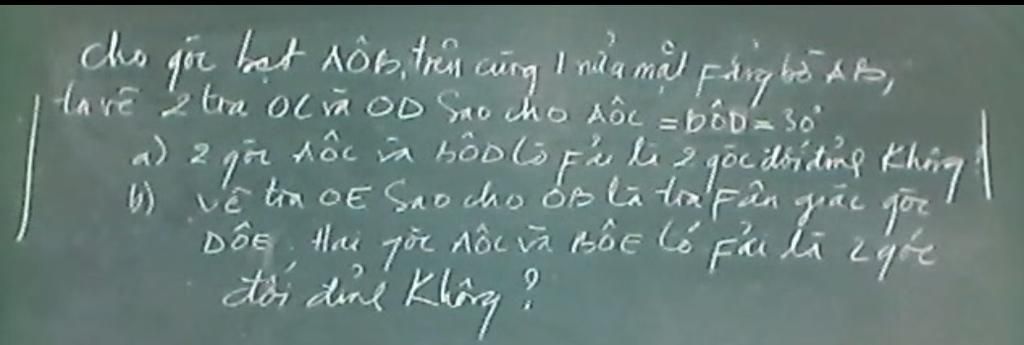 Cho góc bẹt AÔB, trên cùng 1 nửa mặt fẳng bờ AB,
ta vẽ 2 tia OC và OD Sao cho AÔC = BÔD = 30°
a) 2 góc AÔC và BÔD Có Fải là 2 góc đối đỉnh Không?
b) vẽ tia OE Sao cho OB là tia Fân giác góc
DÔE. Hai góc AÔC và BÔE Có Fải là 2 góc
đối đỉnh Không?